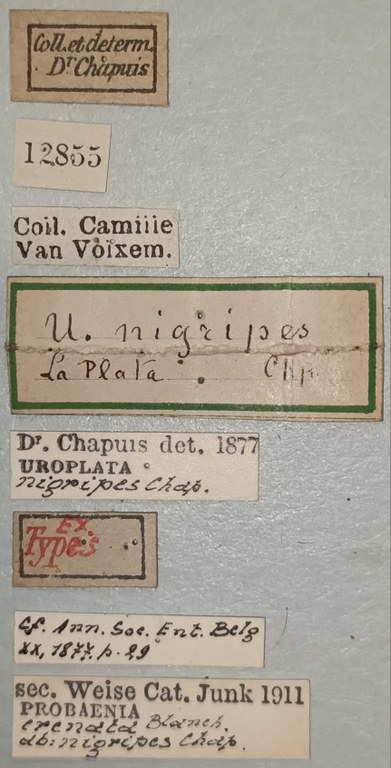 Coll. et determ.
Dr Chapuis
12855
Coll. Camille
Van Volxem.
U. nigripes
La Plata Chp.
Dr. Chapuis det. 1877
UROPLATA
nigripes Chap.
Ex.
Types
cf. Ann. Soc. Ent. Belg
XX, 1877. p. 29
sec. Weise Cat. Junk 1911
PROBAENIA
crenata Blanch.
ab: nigripes Chap.